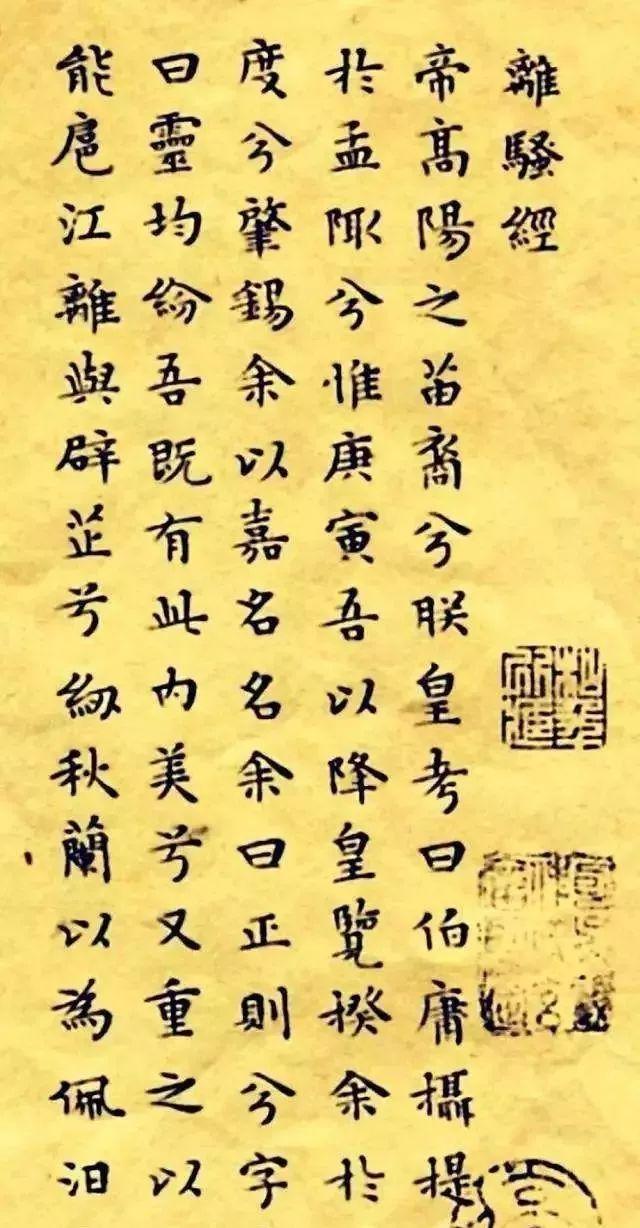 離騷經
帝高陽之苗裔兮朕皇考曰伯庸攝提
於孟陬兮惟庚寅吾以降皇覽揆余於
度兮肇錫余以嘉名名余曰正則兮字
曰靈均紛吾既有此內美兮又重之以
能扈江離與辟芷兮紉秋蘭以為佩汩